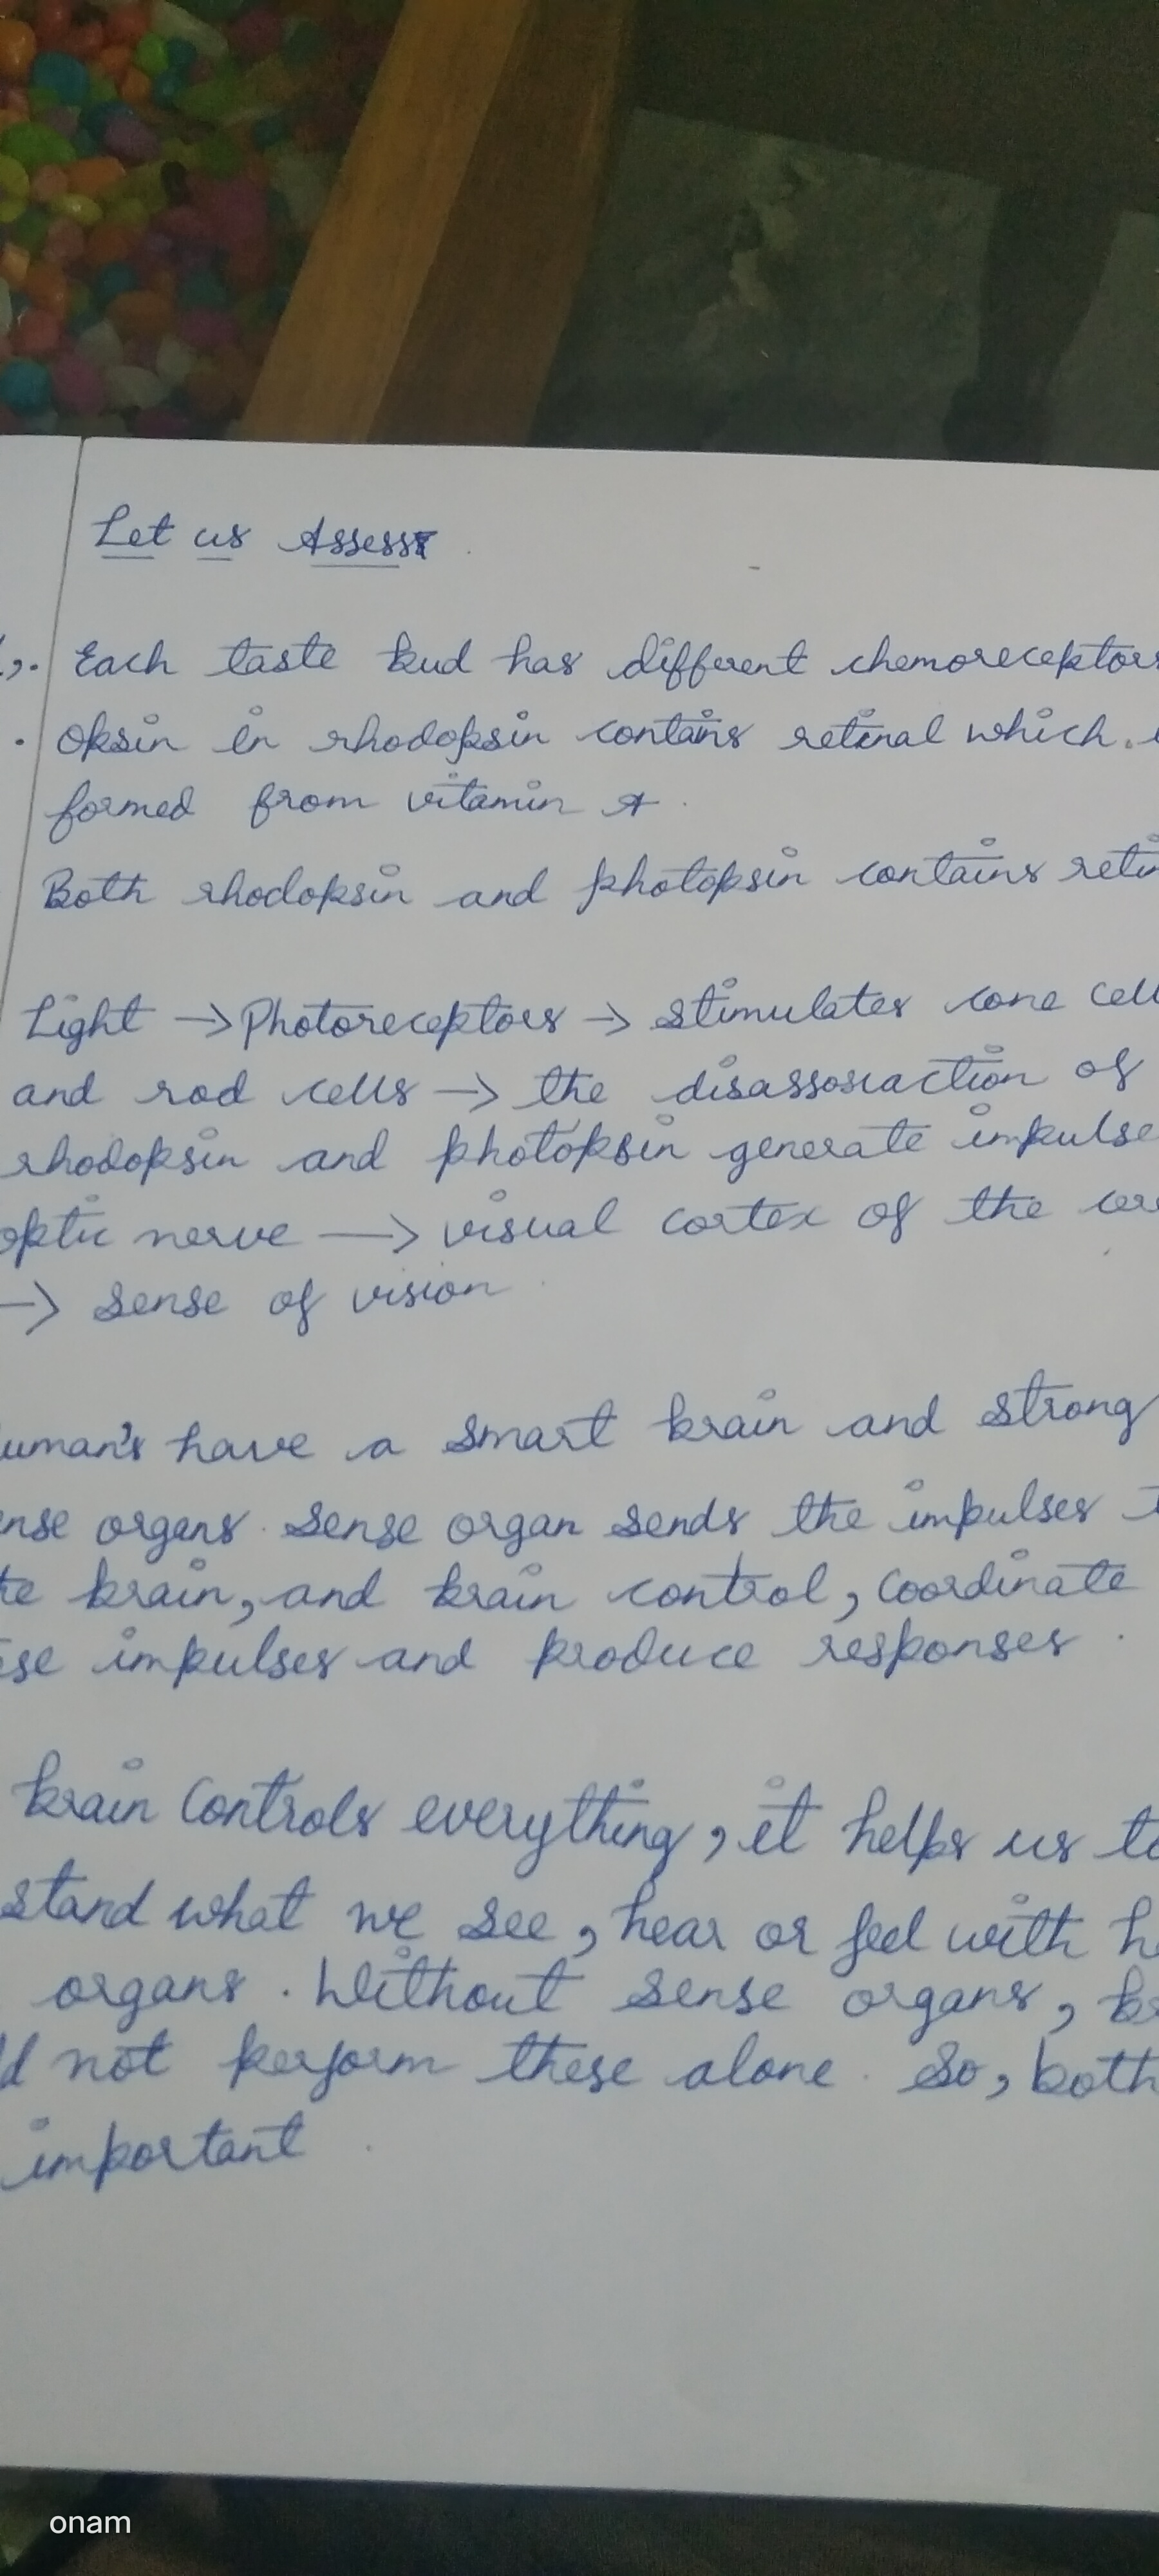 Let us Assess
Each taste bud has different chemoreceptors
opsin in rhodopsin contains retinal which
formed from vitamin A.
Both rhodopsin and photopsin contains
Light → Photoreceptors → stimulates cone
and rod cells → the disassosiaction of
rhodopsin and photopsin generate impulse
optic nerve → visual cortex of the
→ sense of vision
have a smart brain and strong
organs. Sense organ sends the impulses
brain, and brain control, coordinate
impulses and produce responses.
brain controls everything, it helps us
stand what we see, hear or feel with
organs. Without sense organs,
not perform these alone. So, both
important.
onam